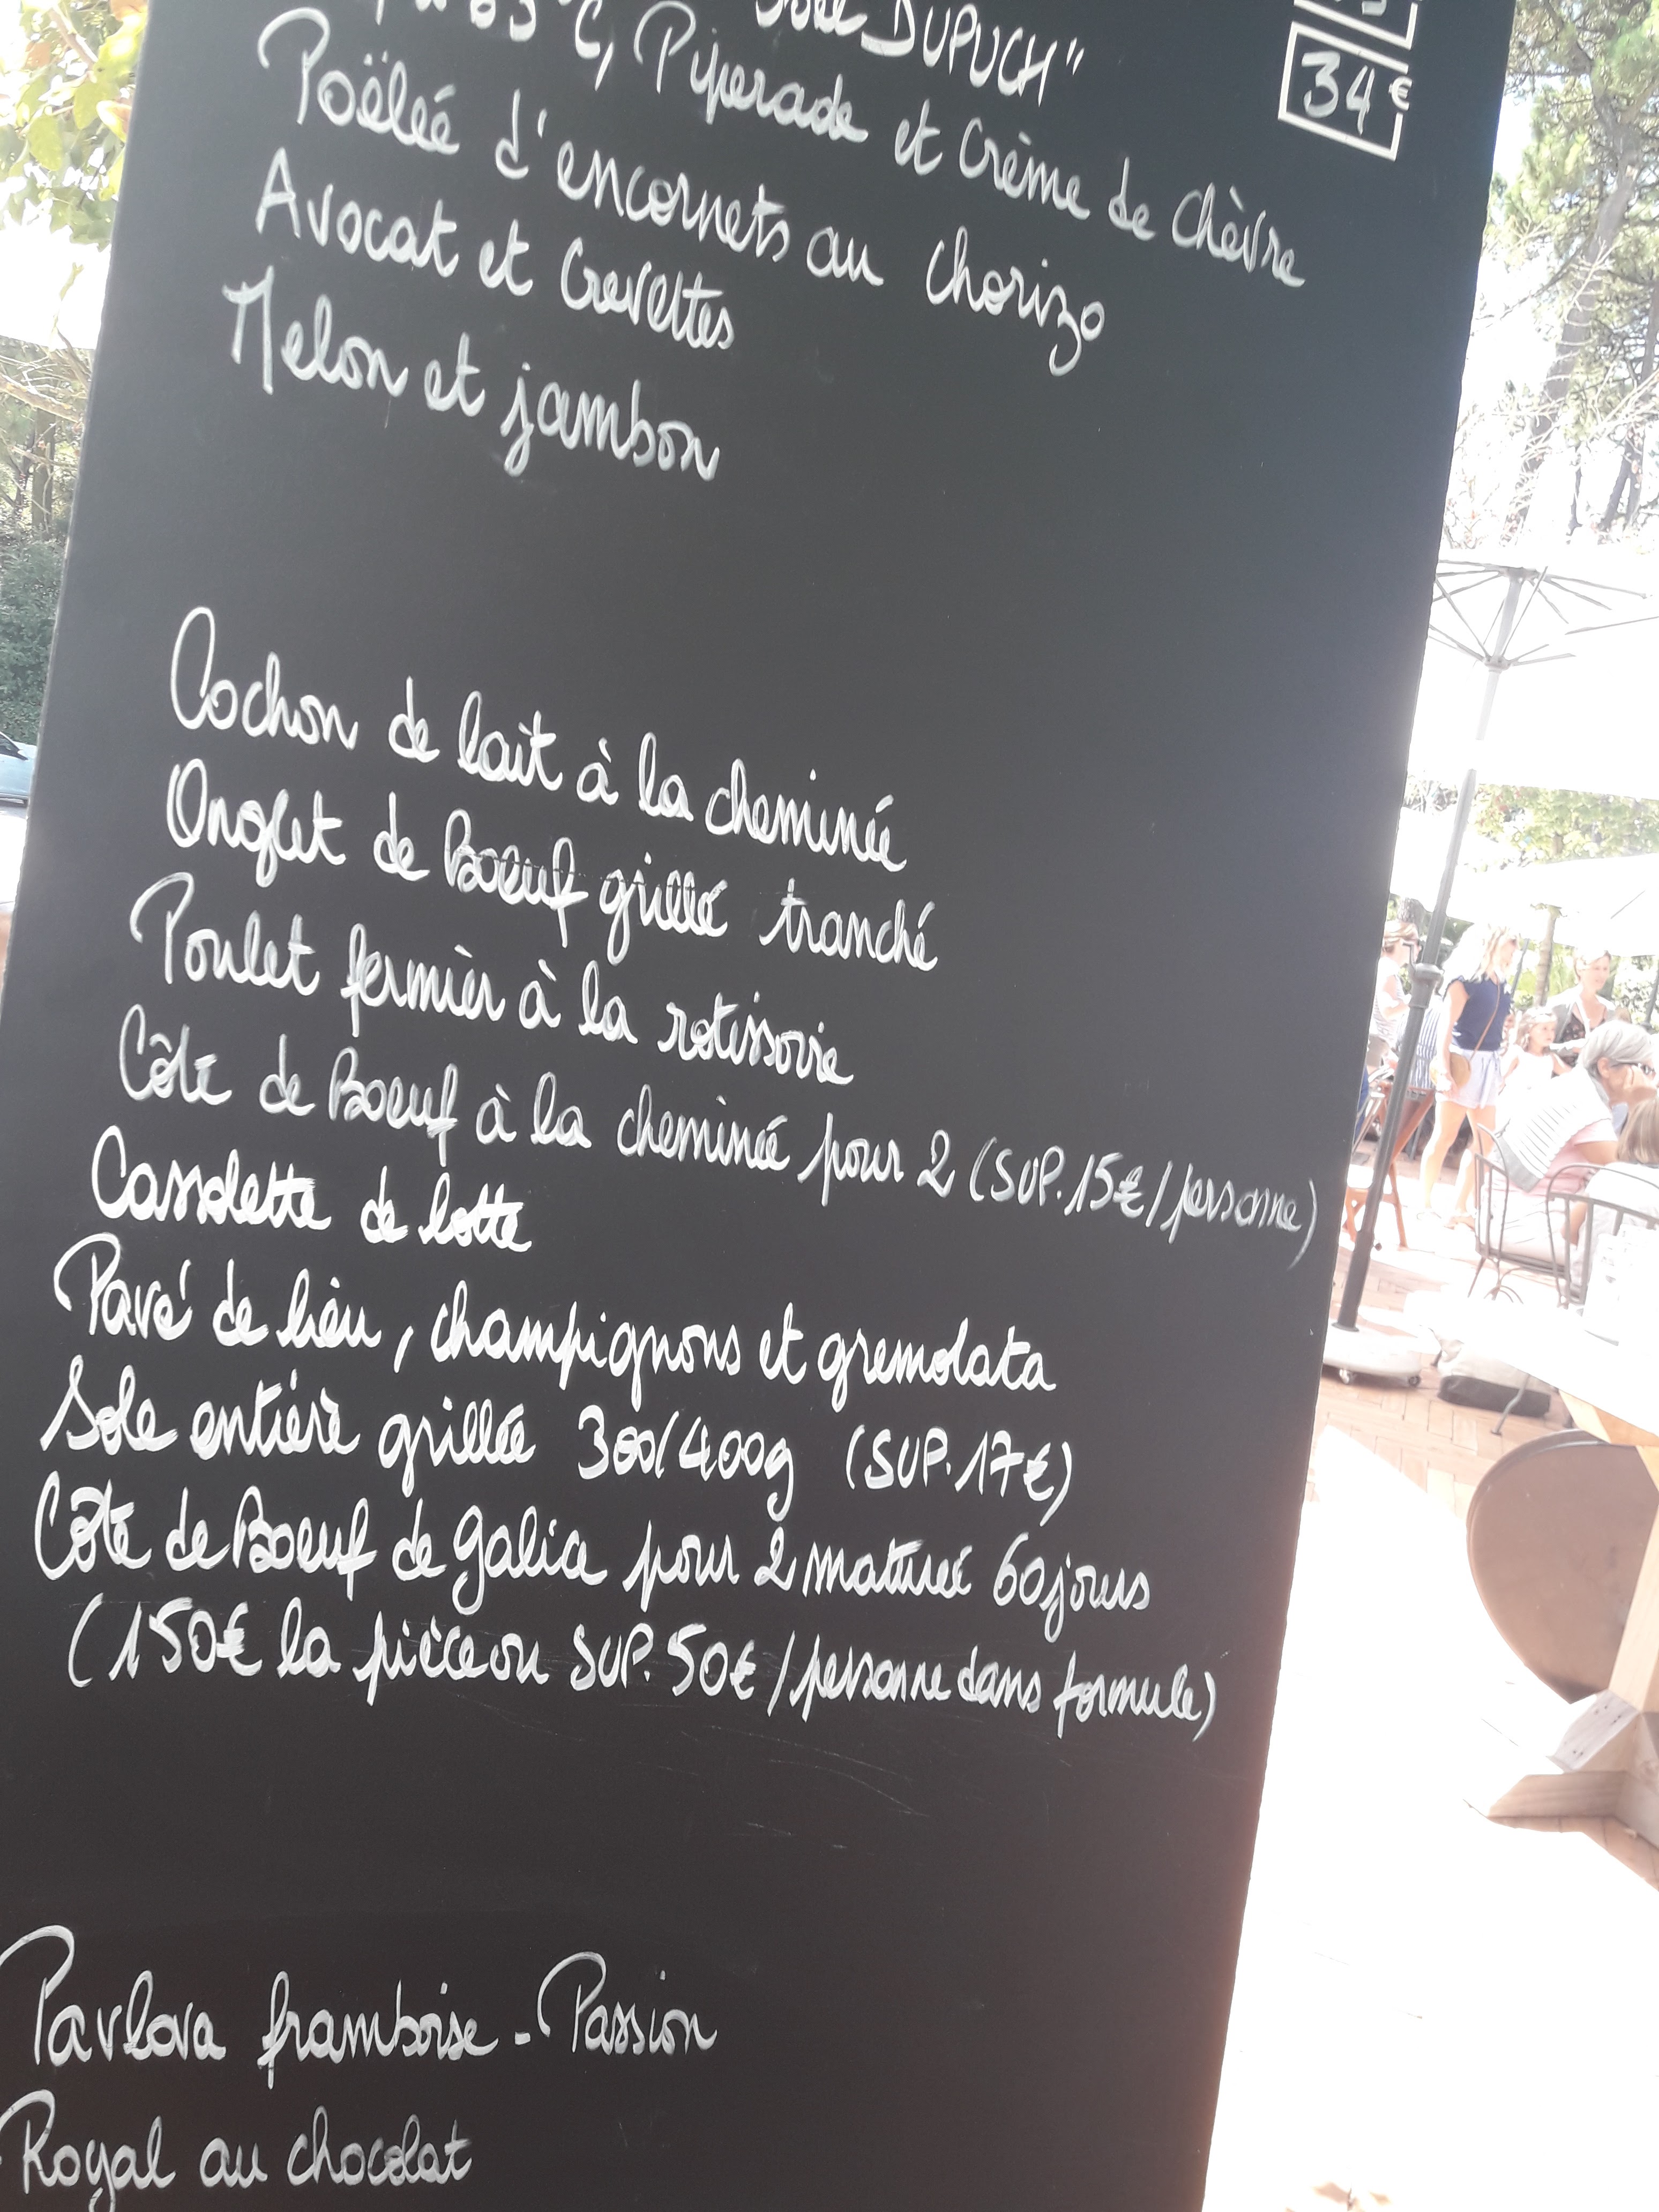 DUPUCH"
34€
63°C, Piperade et Crème de Chèvre
Poëlée d'encornets au chorizo
Avocat et Crevettes
Melon et jambon
Cochon de lait à la cheminée
Onglet de Boeuf grillé tranché
Poulet fermier à la rotissoire
Côte de Boeuf à la cheminée pour 2 (SUP. 15€/personne)
Cassolette de lotte
Pavé de lieu, champignons et gremolata
Sole entière grillée 300/400g (SUP. 17€)
Côte de Boeuf de Galice pour 2 maturée 60 jours
(150€ la pièce ou SUP. 50€/personne dans formule)
Pavlova framboise - Passion
Royal au chocolat